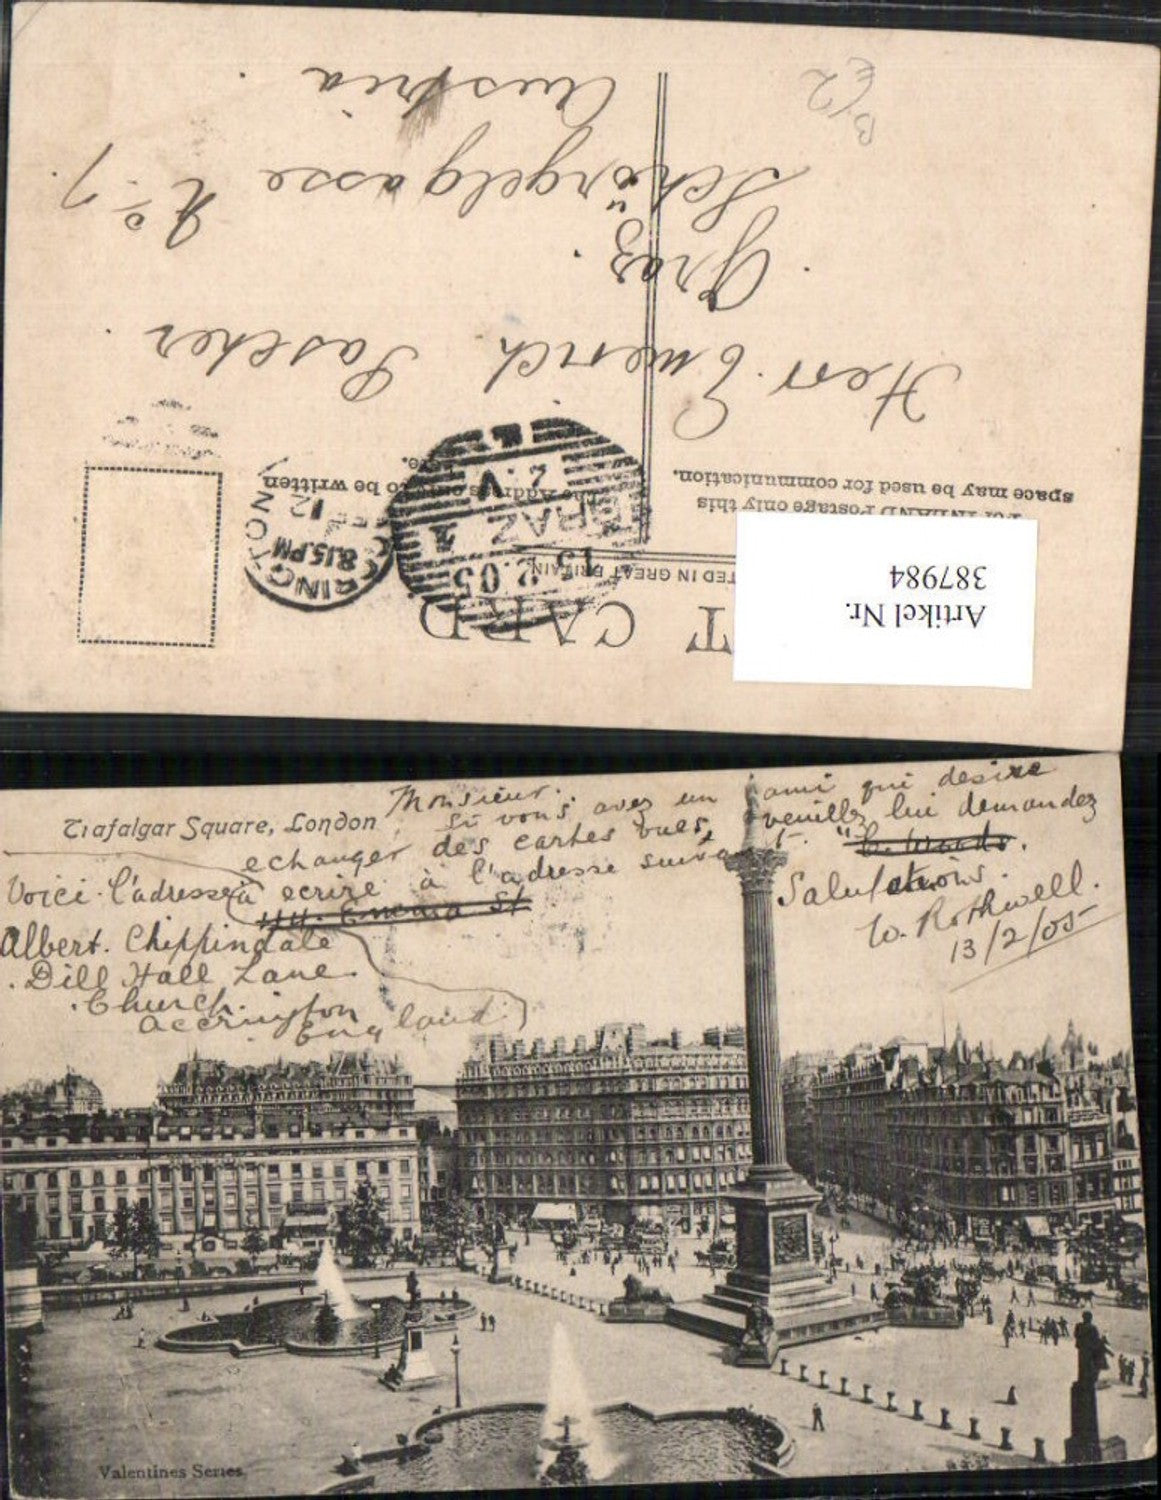 T CARD
TED IN GREAT BRITAIN.
For INLAND Postage only this
space may be used for communication.
The Address only to be written
here.
Artikel Nr.
387984
RINGTON
8.15.PM
12
GRAZ
13 2.05
2. V
Herr Emerich Pascher.
Graz.
Schörgelgasse No. 7.
Austria.
B/2
Trafalgar Square, London
Monsieur.
Si vous avez un ami qui desire
echanger des cartes vues, veuillez lui demandez
ecrire à l'adresse suivant. "C. Woods.
44. Emma St
Salutations.
W. Rothwell.
13/2/05
Voici l'adresse à
Albert. Chippindale
Dill Hall Lane.
Church.
Accrington
England.
Valentines Series